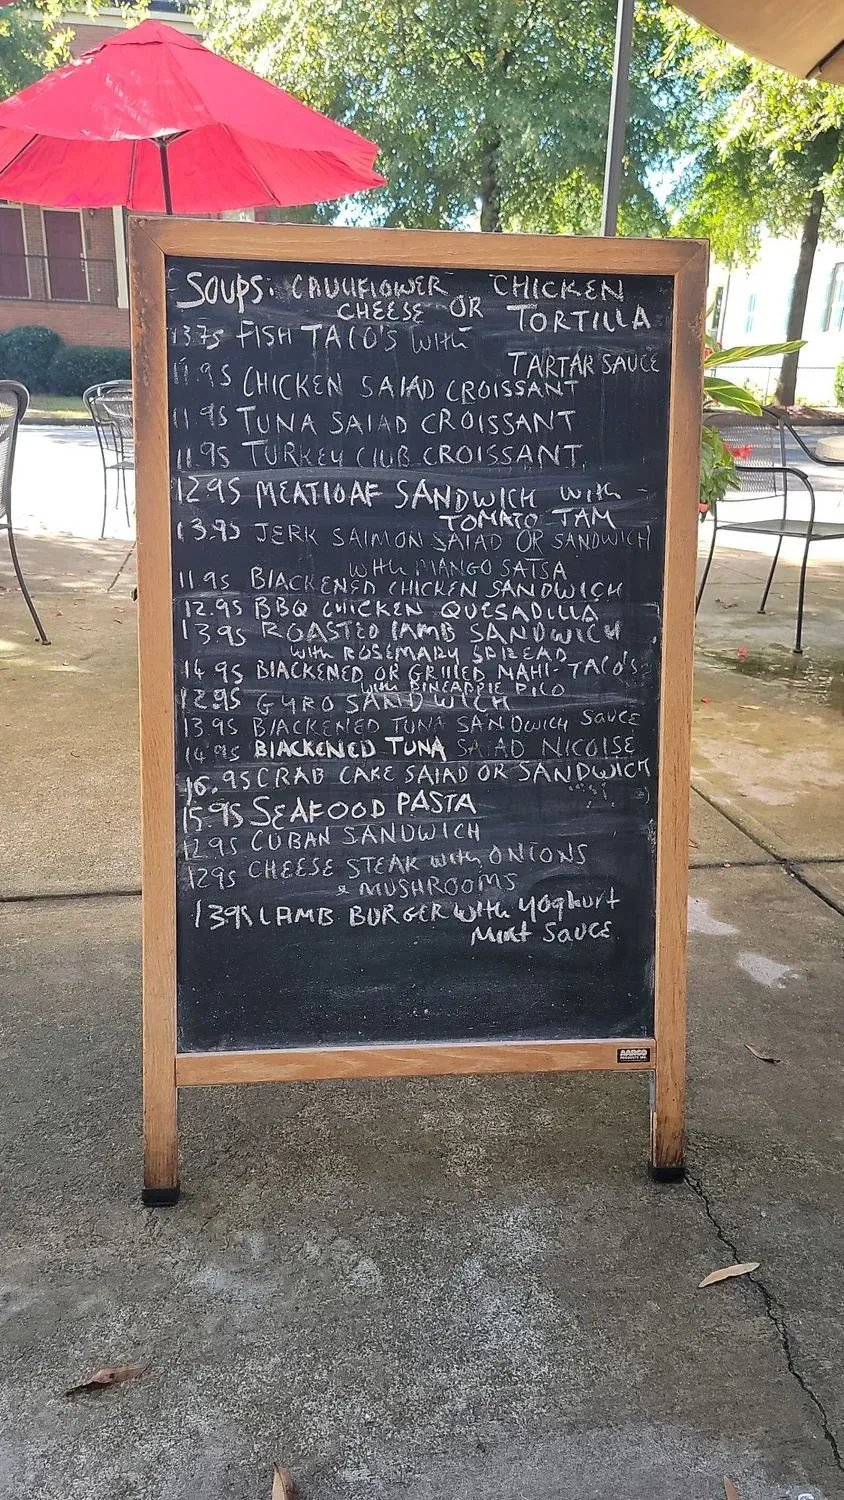 SOUPS: CAULIFLOWER CHICKEN
CHEESE OR TORTILLA
13.75 FISH TACO'S with
TARTAR SAUCE
11.95 CHICKEN SALAD CROISSANT
11.95 TUNA SALAD CROISSANT
11.95 TURKEY CLUB CROISSANT
12.95 MEATLOAF SANDWICH with
TOMATO JAM
13.95 JERK SALMON SALAD OR SANDWICH
with MANGO SALSA
11.95 BLACKENED CHICKEN SANDWICH
12.95 BBQ CHICKEN QUESADILLA
13.95 ROASTED LAMB SANDWICH
with ROSEMARY SPREAD
14.95 BLACKENED OR GRILLED MAHI-TACO'S
with PINEAPPLE PICO
12.95 GYRO SANDWICH
13.95 BLACKENED TUNA SANDWICH SAUCE
14.95 BLACKENED TUNA SALAD NICOISE
16.95 CRAB CAKE SALAD OR SANDWICH
15.95 SEAFOOD PASTA
12.95 CUBAN SANDWICH
12.95 CHEESE STEAK with ONIONS
& MUSHROOMS
13.95 LAMB BURGER with yoghurt
Mint SAUCE
AARCO
PRODUCTS INC.